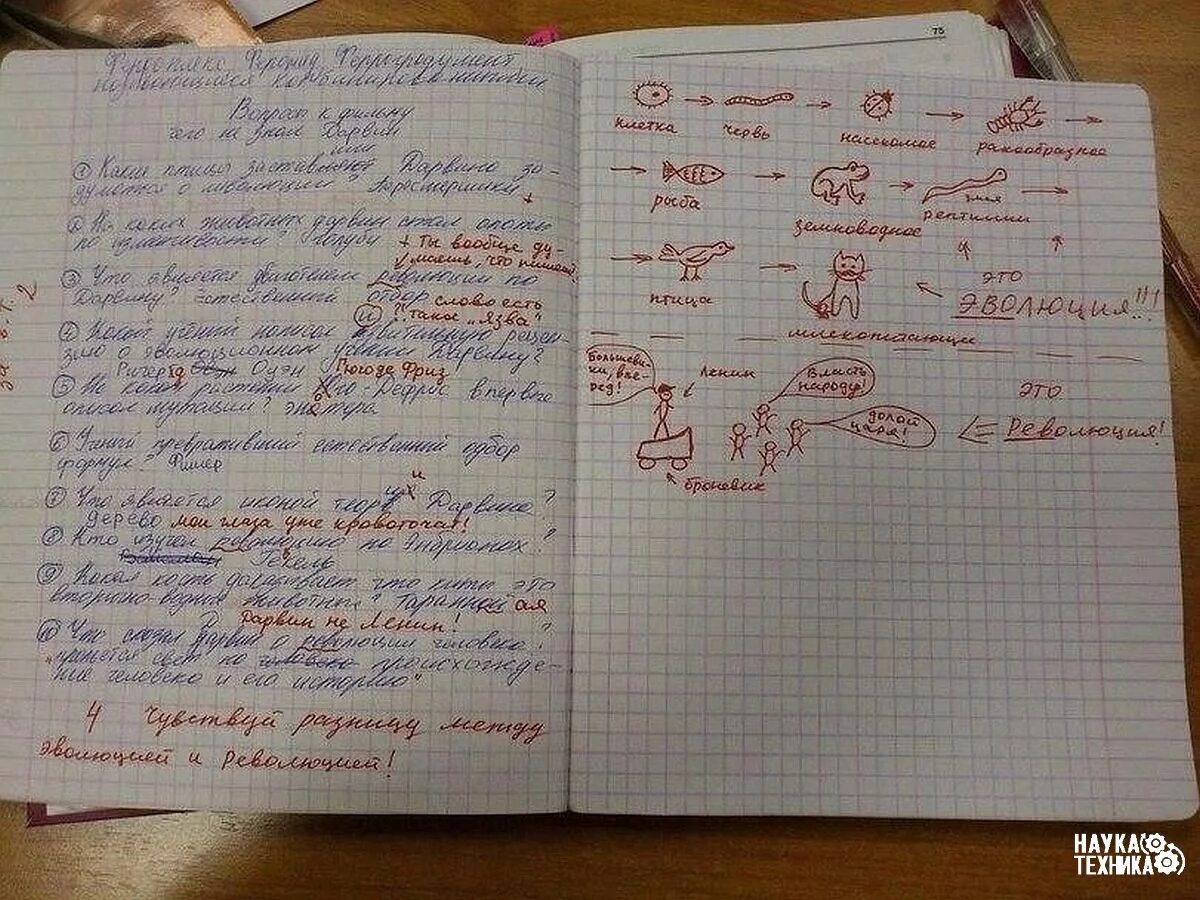 Вопросы к фильму
чего не знал Дарвин
① Какие птицы заставляют Дарвина за-
думатся о революции?
+
② На каких животных дарвин ставил опыты
по изменчивости? голуби + Ты вообще ду-
маешь, что пишешь?
③ Что является двигателем революции по
Дарвину? естественный отбор слово есть
и такое "язва"
④ Какой учёный написал
о эволюционном учении Дарвину?
Ричерд Оуэн Гюгоде Фриз
⑤ На каком растении Гюго-Дефриз впервые
описал мутации? энотера
⑥ Учёный превративший естественный одбор
формул? Фишер
⑦ Что является иконой теори и Дарвина?
дерево мои глаза уже кровоточат!
⑧ Кто изучал революцию по Эмбрионах?
Геккель
⑨ Какая кость доказывает что киты это
вторично-водные животные? Таранной ая
Дарвин не Ленин!
⑩ Что сказал Дарвин о революции человека?
"прольётся свет на человека происхожде-
ние человека и его историю"
4 Чувствуй разницу между
эволюцией и революцией!
2
75
клетка червь насекомое ракообразное
рыба земноводное змея
рептилии
птица это
ЭВОЛЮЦИЯ!!!
млекопитающие
Большеви-
ки, впе-
ред!
Ленин
Власть
народу!
долой
царя!
это
Революция!
броневик
НАУКА
ТЕХНИКА